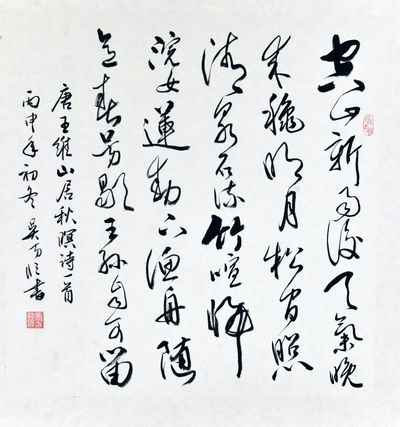 空山新雨後天氣晚
来穐明月松间照
清泉石上流竹喧歸
浣女蓮動下漁舟随
意春芳歇王孫自可留
唐王維山居秋暝诗一首
丙申年初冬吴书